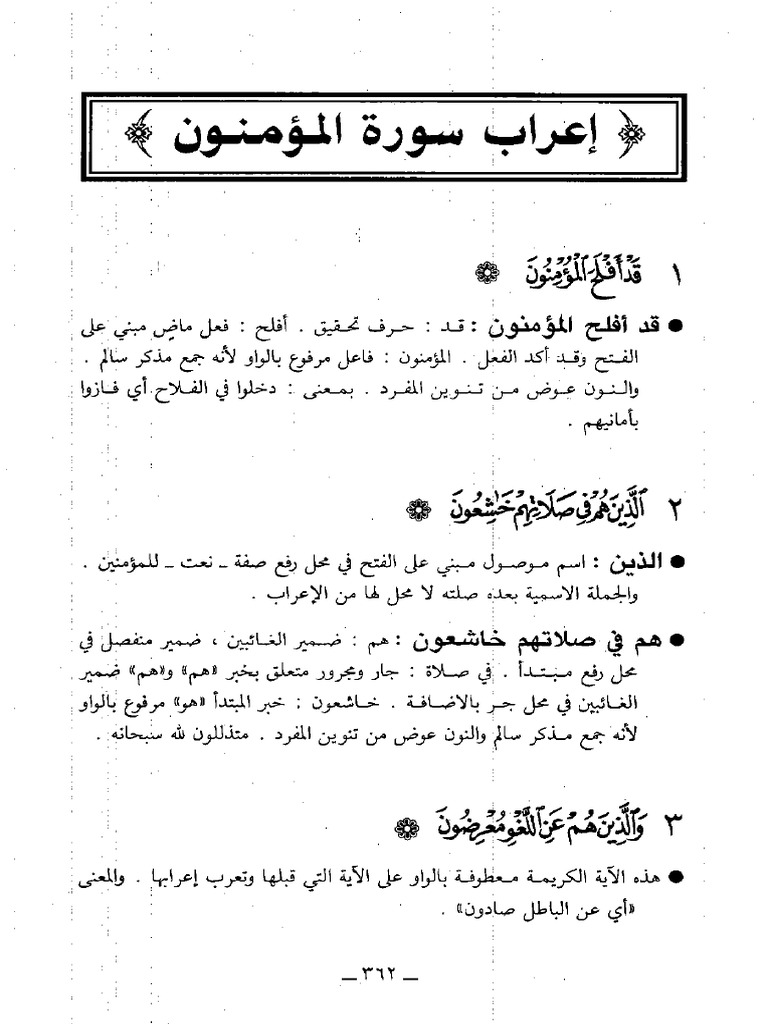 إعراب سورة المؤمنون
١ قَدْ أَفْلَحَ الْمُؤْمِنُونَ
● قد أفلح المؤمنون : قد : حرف تحقيق . أفلح : فعل ماضٍ مبني على
الفتح وقد أكد الفعل . المؤمنون : فاعل مرفوع بالواو لأنه جمع مذكر سالم .
والنون عوض من تنوين المفرد . بمعنى : دخلوا في الفلاح أي فازوا
بأمانيهم .
٢ الَّذِينَ هُمْ فِي صَلَاتِهِمْ خَاشِعُونَ
● الذين : اسم موصول مبني على الفتح في محل رفع صفة ـ نعت ـ للمؤمنين .
والجملة الاسمية بعده صلته لا محل لها من الإعراب .
● هم في صلاتهم خاشعون : هم : ضمير الغائبين ، ضمير منفصل في
محل رفع مبتدأ . في صلاة : جار ومجرور متعلق بخبر «هم» و«هم» ضمير
الغائبين في محل جر بالاضافة . خاشعون : خبر المبتدأ «هو» مرفوع بالواو
لأنه جمع مذكر سالم والنون عوض من تنوين المفرد . متذللون لله سبحانه .
٣ وَالَّذِينَ هُمْ عَنِ اللَّغْوِ مُعْرِضُونَ
● هذه الآية الكريمة معطوفة بالواو على الآية التي قبلها وتعرب إعرابها . والمعنى
«أي عن الباطل صادون» .
ـ ٣٦٢ ـ